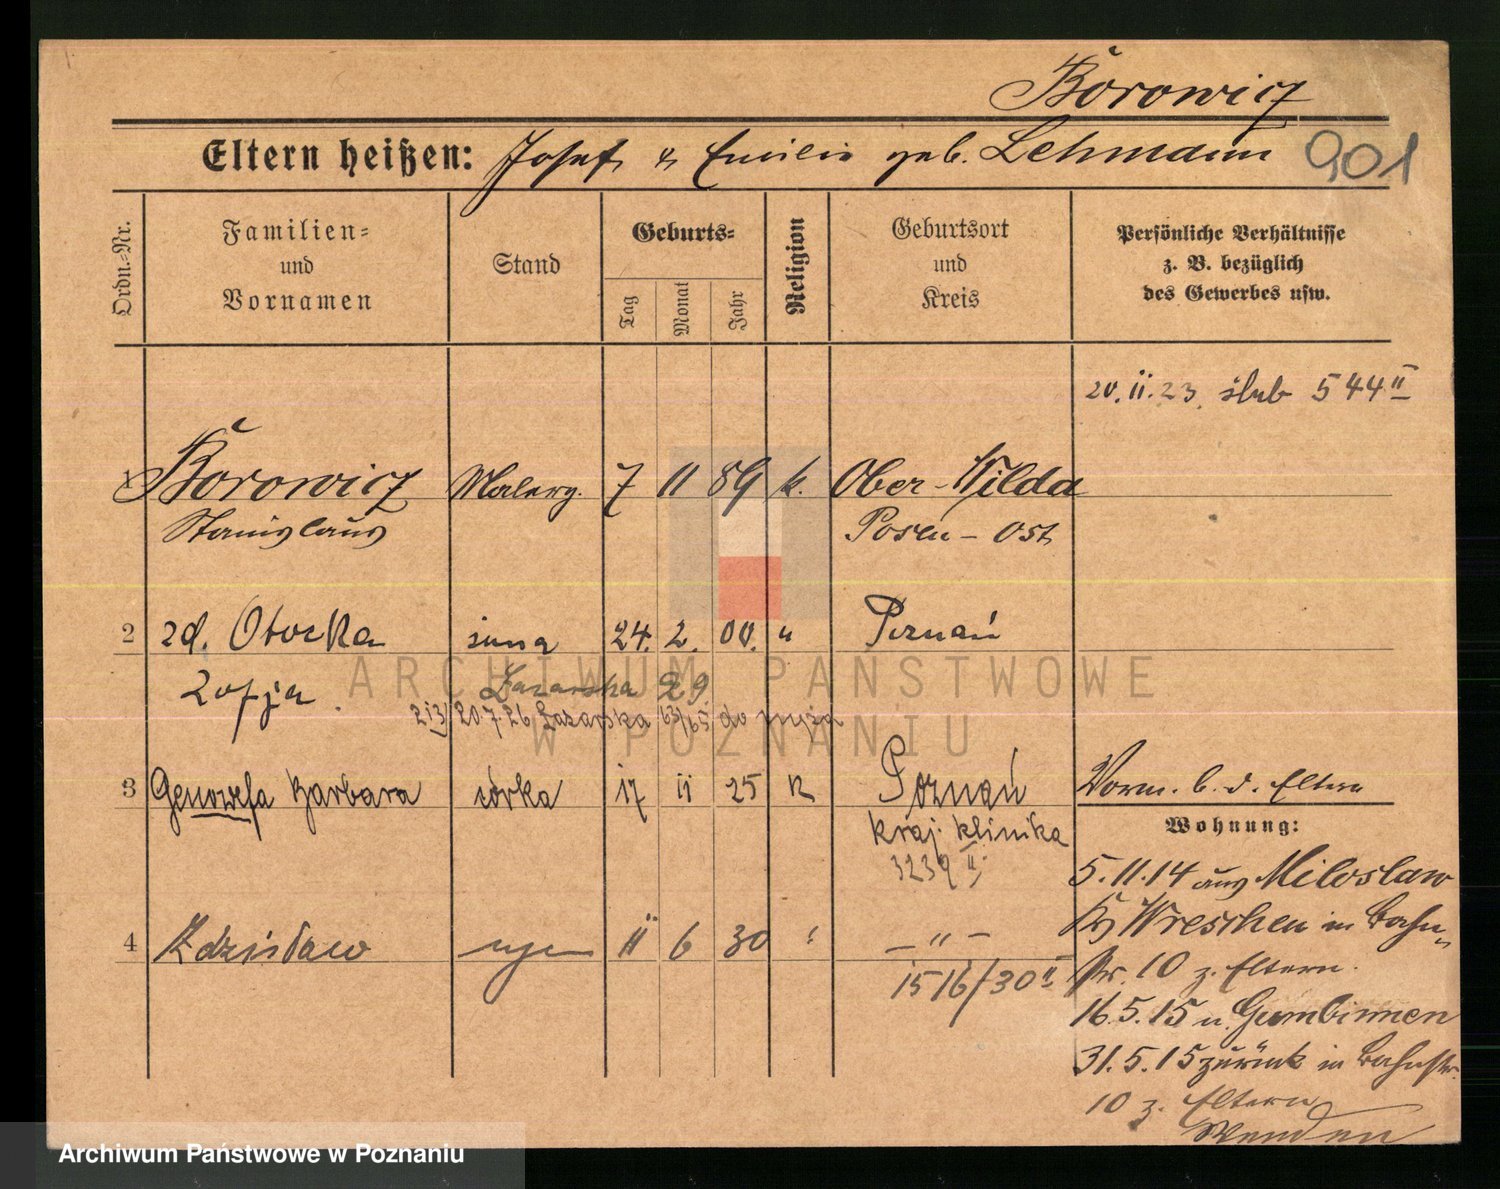 Borowicz
Eltern heißen: Josef & Emilie geb. Lehmann 901
Ordn.-Nr.
Familien-
und
Vornamen
Stand
Geburts-
Tag
Monat
Jahr
Religion
Geburtsort
und
Kreis
Persönliche Verhältnisse
z. B. bezüglich
des Gewerbes usw.
20.II.23. ślub 544 II
1 Borowicz Malerg. 7 11 89 k. Ober-Wilda
Stanislaus Posen - Ost
2 zd. Otocka żona 24. 2. 00. " Poznań
Zofja Łazarska 29
213/ 20.7.26 Łazarska 63/65 do męża
3 Genowefa Barbara córka 17 II 25 k Poznań
kraj. klinika
3239 II
Vorm. b. d. Eltern
Wohnung:
5.11.14 aus Miloslaw
Kr Wreschen in Bahn-
str. 10 z. Eltern.
4 Zdzisław syn 11 6 30 - " -
1516/30 II
16.5.15 n. Gumbinnen
31.5.15 zurück in Bahnstr.
10 z. Eltern
Wenden
ARCHIWUM PAŃSTWOWE
W POZNANIU
Archiwum Państwowe w Poznaniu